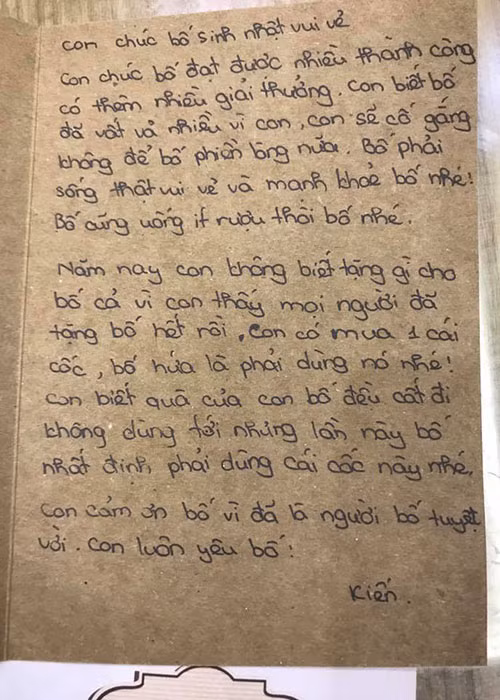 con chúc bố sinh nhật vui vẻ
con chúc bố đạt được nhiều thành công
có thêm nhiều giải thưởng. con biết bố
đã vất vả nhiều vì con, con sẽ cố gắng
không để bố phiền lòng nữa. Bố phải
sống thật vui vẻ và mạnh khoẻ bố nhé!
Bố cũng uống ít rượu thôi bố nhé.
Năm nay con không biết tặng gì cho
bố cả vì con thấy mọi người đã
tặng bố hết rồi, con có mua 1 cái
cốc, bố hứa là phải dùng nó nhé!
con biết quà của con bố đều cất đi
không dùng tới nhưng lần này bố
nhất định phải dùng cái cốc này nhé,
con cảm ơn bố vì đã là người bố tuyệt
vời. con luôn yêu bố!
Kiến.